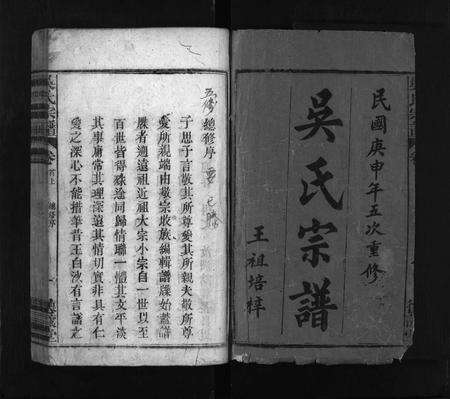 民國庚申年五次重修
吳氏宗譜
王祖培梓
五修總修序
子思子言敬其所尊愛其所親夫敬所尊
愛所親端由敬宗收族編輯譜牒始蓋譜
展者溯遠祖近祖大宗小宗自一世以至
百世皆得殊途同歸情聯一體其文平淡
其事庸常其理深遠其情切實非具有仁
愛之深心不能措筆昔王自沙有言譜之
吳氏宗譜
卷首上
總修序